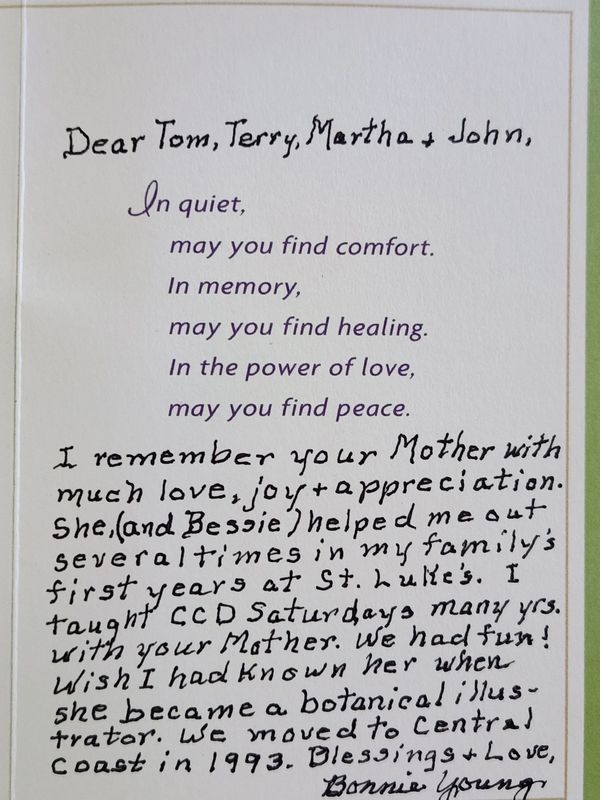 Dear Tom, Terry, Martha + John,
In quiet,
may you find comfort.
In memory,
may you find healing.
In the power of love,
may you find peace.
I remember your Mother with
much love, joy + appreciation.
She, (and Bessie) helped me out
several times in my family's
first years at St. Luke's. I
taught CCD Saturdays many yrs.
with your Mother. We had fun!
Wish I had known her when
she became a botanical illus-
trator. We moved to Central
Coast in 1993. Blessings + Love,
Bonnie Young